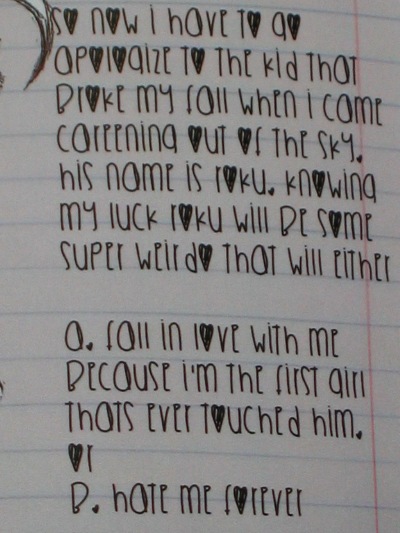 so now i have to go
apologize to the kid that
broke my fall when i come
careening out of the sky.
his name is roku. knowing
my luck roku will be some
super weirdo that will either
a. fall in love with me
because i'm the first girl
thats ever touched him.
or
b. hate me forever